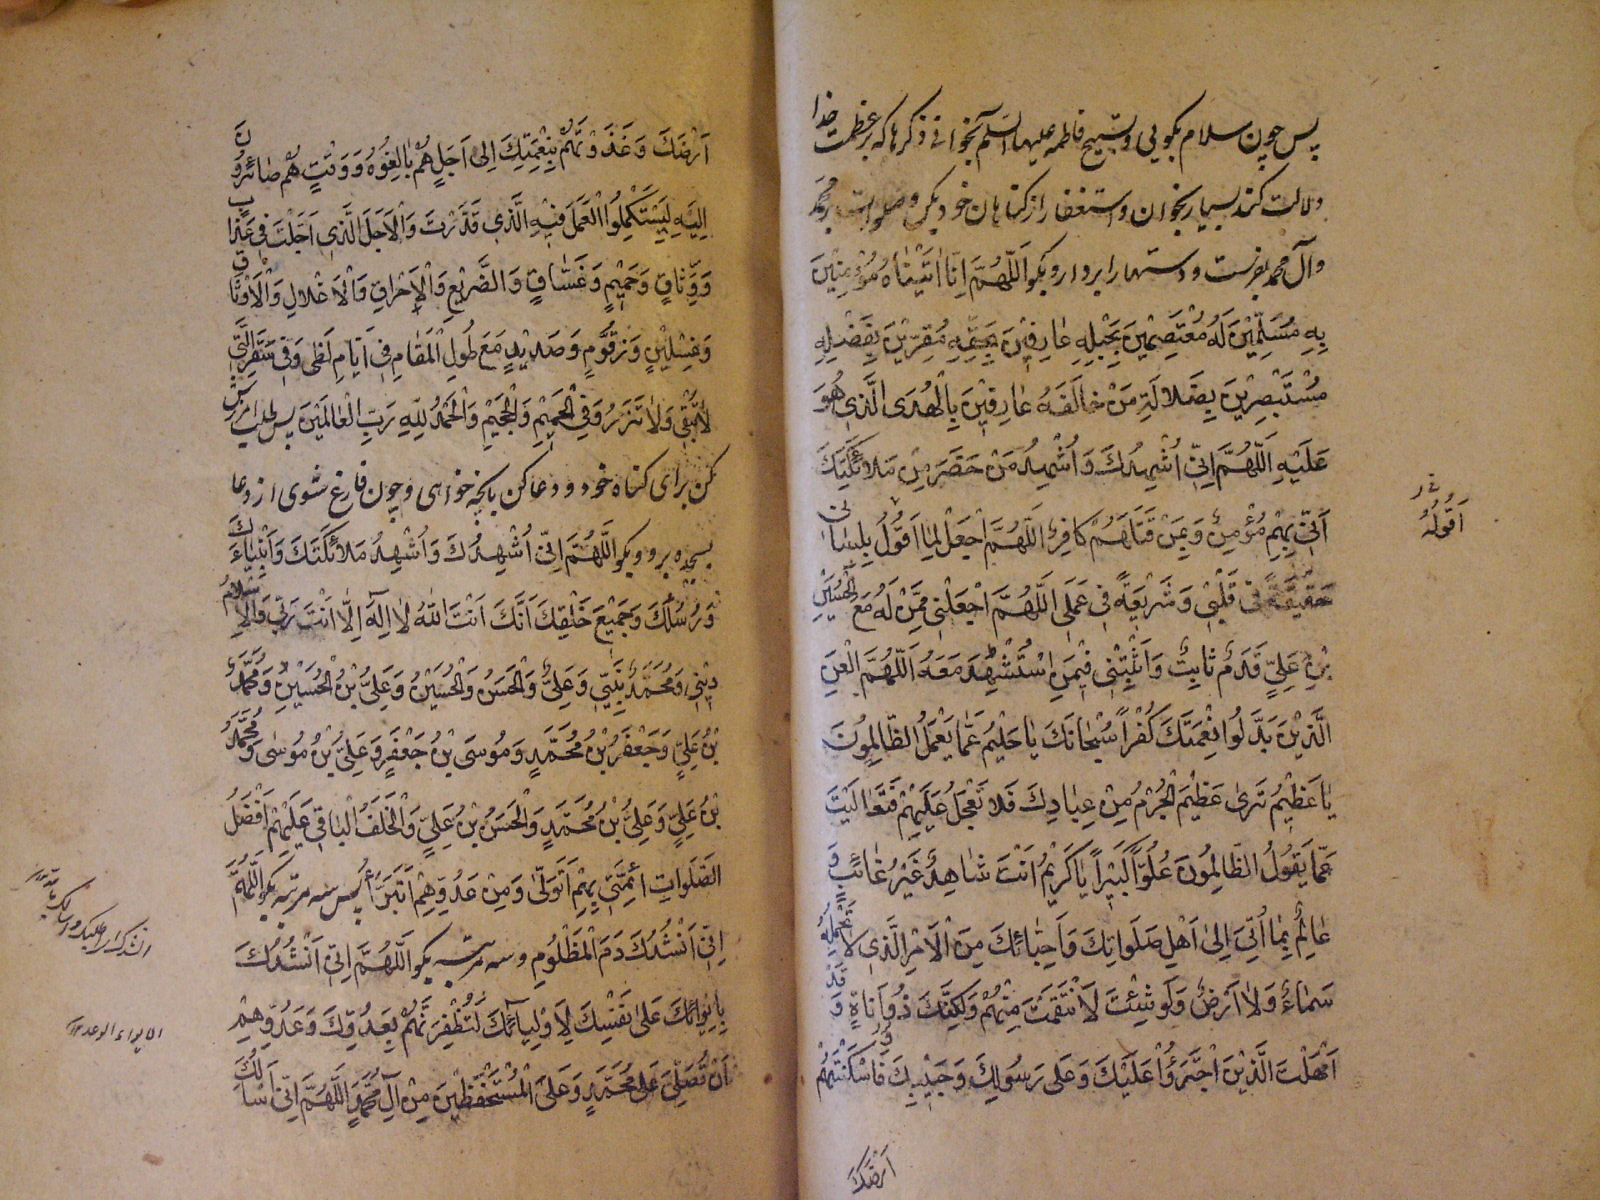 پس چون سلام بگویی و تسبیح فاطمه علیها السلم بخوانی ذکرها که بر عظمت خدا
دلالت کند بسیار بخوان و استغفار از گناهان خود بکن و صلوات بر محمد
و آل محمد بفرست و دستها را بردار و بگو اَللّهُمَّ اِنّا اَتَیْناهُ مُؤْمِنینَ
بِهِ مُسَلِّمینَ لَهُ مُعْتَصِمینَ بِحَبْلِهِ عارِفینَ بِحَقِّهِ مُقِرّینَ بِفَضْلِهِ
مُسْتَبْصِرینَ بِضَلالَةِ مَنْ خالَفَهُ عارِفینَ بِالْهُدَی الَّذی هُوَ
عَلَیْهِ اَللّهُمَّ اِنّی اُشْهِدُکَ وَ اُشْهِدُ مَنْ حَضَرَ مِنْ مَلائِکَتِکَ
اَنّی بِهِمْ مُؤْمِنٌ وَ بِمَنْ قَتَلَهُمْ کافِرٌ اَللّهُمَّ اجْعَلْ لِما اَقُولُ بِلِسانی
حَقیقَةً فی قَلْبی وَ شَریعَةً فی عَمَلی اَللّهُمَّ اجْعَلْنی مِمَّنْ لَهُ مَعَ الْحُسَیْنِ
بْنِ عَلِیٍّ قَدَمٌ ثابِتٌ وَ اَثْبِتْنی فیمَنِ اسْتُشْهِدَ مَعَهُ اَللّهُمَّ الْعَنِ
الَّذینَ بَدَّلُوا نِعْمَتَکَ کُفْراً سُبْحانَکَ یا حَلیمُ عَمّا یَعْمَلُ الظّالِمُونَ
یا عَظیمُ تَری عَظیمَ الْجُرْمِ مِنْ عِبادِکَ فَلا تَعْجَلُ عَلَیْهِمْ فَتَعالَیْتَ
عَمّا یَقُولُ الظّالِمُونَ عُلُوّاً کَبیراً یا کَریمُ اَنْتَ شاهِدٌ غَیْرُ غائِبٍ وَ
عالِمٌ بِما اُتِیَ اِلی اَهْلِ صَلَواتِکَ وَ اَحِبّائِکَ مِنَ الْاَمْرِ الَّذی لا تَحْمِلُهُ
سَماءٌ وَلا اَرْضٌ وَ لَوْ شِئْتَ لَانْتَقَمْتَ مِنْهُمْ وَ لکِنَّکَ ذُو اَناةٍ وَ قَدْ
اَمْهَلْتَ الَّذینَ اجْتَرَؤُا عَلَیْکَ وَ عَلی رَسُولِکَ وَ حَبیبِکَ فَاَسْکَنْتَهُمْ
اَرْضَکَ
اَقُولُهُ
اَرْضَکَ وَ غَذَوْتَهُمْ بِنِعْمَتِکَ اِلی اَجَلٍ هُمْ بالِغُوهُ وَ وَقْتٍ هُمْ صائِرُونَ
اِلَیْهِ لِیَسْتَکْمِلُوا الْعَمَلَ فیهِ الَّذی قَدَّرْتَ وَ الْاَجَلَ الَّذی اَجَّلْتَ فی عَذابٍ
وَ وِثاقٍ وَ حَمیمٍ وَ غَسّاقٍ وَ الضَّریعِ وَ الْاِحْراقِ وَ الْاَغْلالِ وَ الْاَوْثاقِ
وَ غِسْلینٍ وَ زَقُّومٍ وَ صَدیدٍ مَعَ طُولِ الْمَقامِ فی اَیّامِ لَظی وَ فی سَقَرَ الَّتی
لا تُبْقی وَ لا تَذَرُ وَ فِی الْحَمیمِ وَ الْجَحیمِ وَ الْحَمْدُ لِلّهِ رَبِّ الْعالَمینَ پس طلب امرزش
کن برای گناه خود و دعا کن بآنچه خواهی و چون فارغ شوی از دعا
بسجده برو و بگو اَللّهُمَّ اِنّی اُشْهِدُکَ وَ اُشْهِدُ مَلائِکَتَکَ وَ اَنْبِیاءَکَ
وَ رُسُلَکَ وَ جَمیعَ خَلْقِکَ اَنَّکَ اَنْتَ اللّهُ لا اِلهَ اِلّا اَنْتَ رَبّی وَ الْاِسْلامُ
دینی وَ مُحَمَّدٌ نَبِیّی وَ عَلِیٌّ وَ الْحَسَنُ وَ الْحُسَیْنُ وَ عَلِیُّ بْنُ الْحُسَیْنِ وَ مُحَمَّدُ
بْنُ عَلِیٍّ وَ جَعْفَرُ بْنُ مُحَمَّدٍ وَ مُوسَی بْنُ جَعْفَرٍ وَ عَلِیُّ بْنُ مُوسی وَ مُحَمَّدُ
بْنُ عَلِیٍّ وَ عَلِیُّ بْنُ مُحَمَّدٍ وَ الْحَسَنُ بْنُ عَلِیٍّ وَ الْخَلَفُ الْباقی عَلَیْهِمْ اَفْضَلُ
الصَّلَواتِ اَئِمَّتی بِهِمْ اَتَوَلّی وَ مِنْ عَدُوِّهِمْ اَتَبَرَّأُ پس سه مرتبه بگو اَللّهُمَّ
اِنّی اَنْشُدُکَ دَمَ الْمَظْلُومِ و سه مرتبه بگو اَللّهُمَّ اِنّی اَنْشُدُکَ
بِایوائِکَ عَلی نَفْسِکَ لِاَوْلِیائِکَ لَتُظْفِرَنَّهُمْ بِعَدُوِّکَ وَ عَدُوِّهِمْ
اَنْ تُصَلِّیَ عَلی مُحَمَّدٍ وَ عَلَی الْمُسْتَحْفَظینَ مِنْ آلِ مُحَمَّدٍ اَللّهُمَّ اِنّی اَسْاَلُکَ
الایواء الوعد